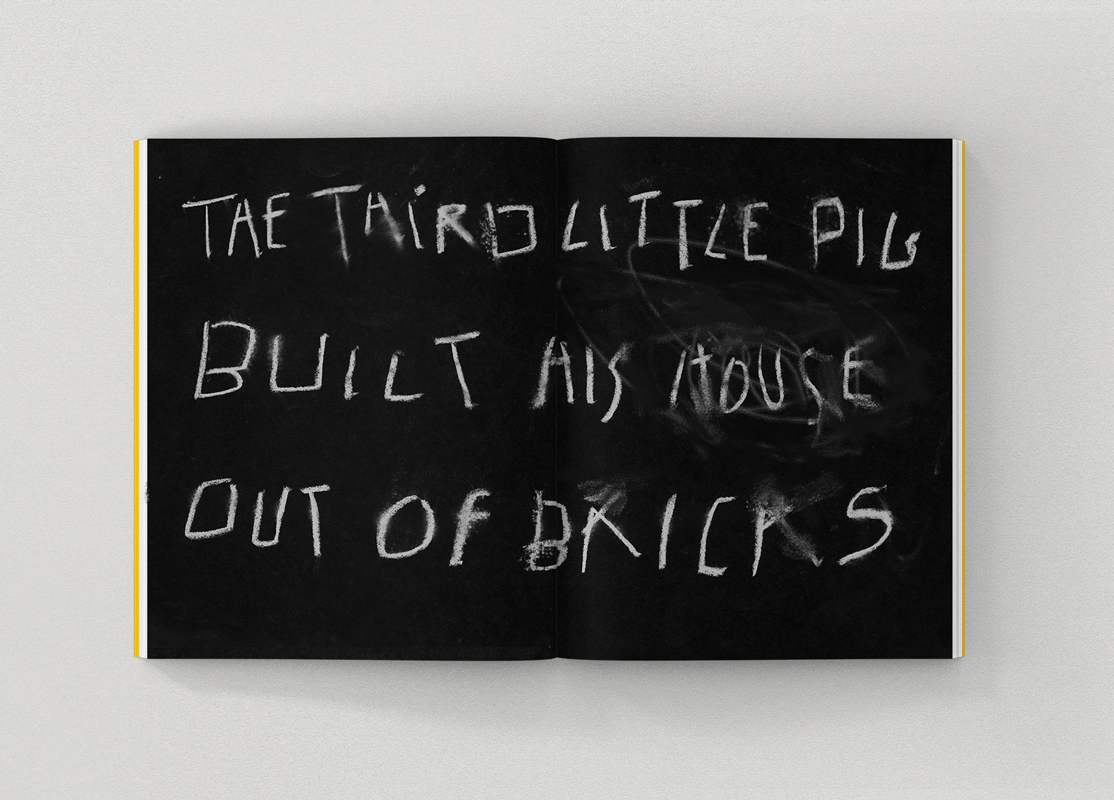 THE THiRD LITTLE PIG
BUILT HIS HOUSE
OUT OF BRICKS